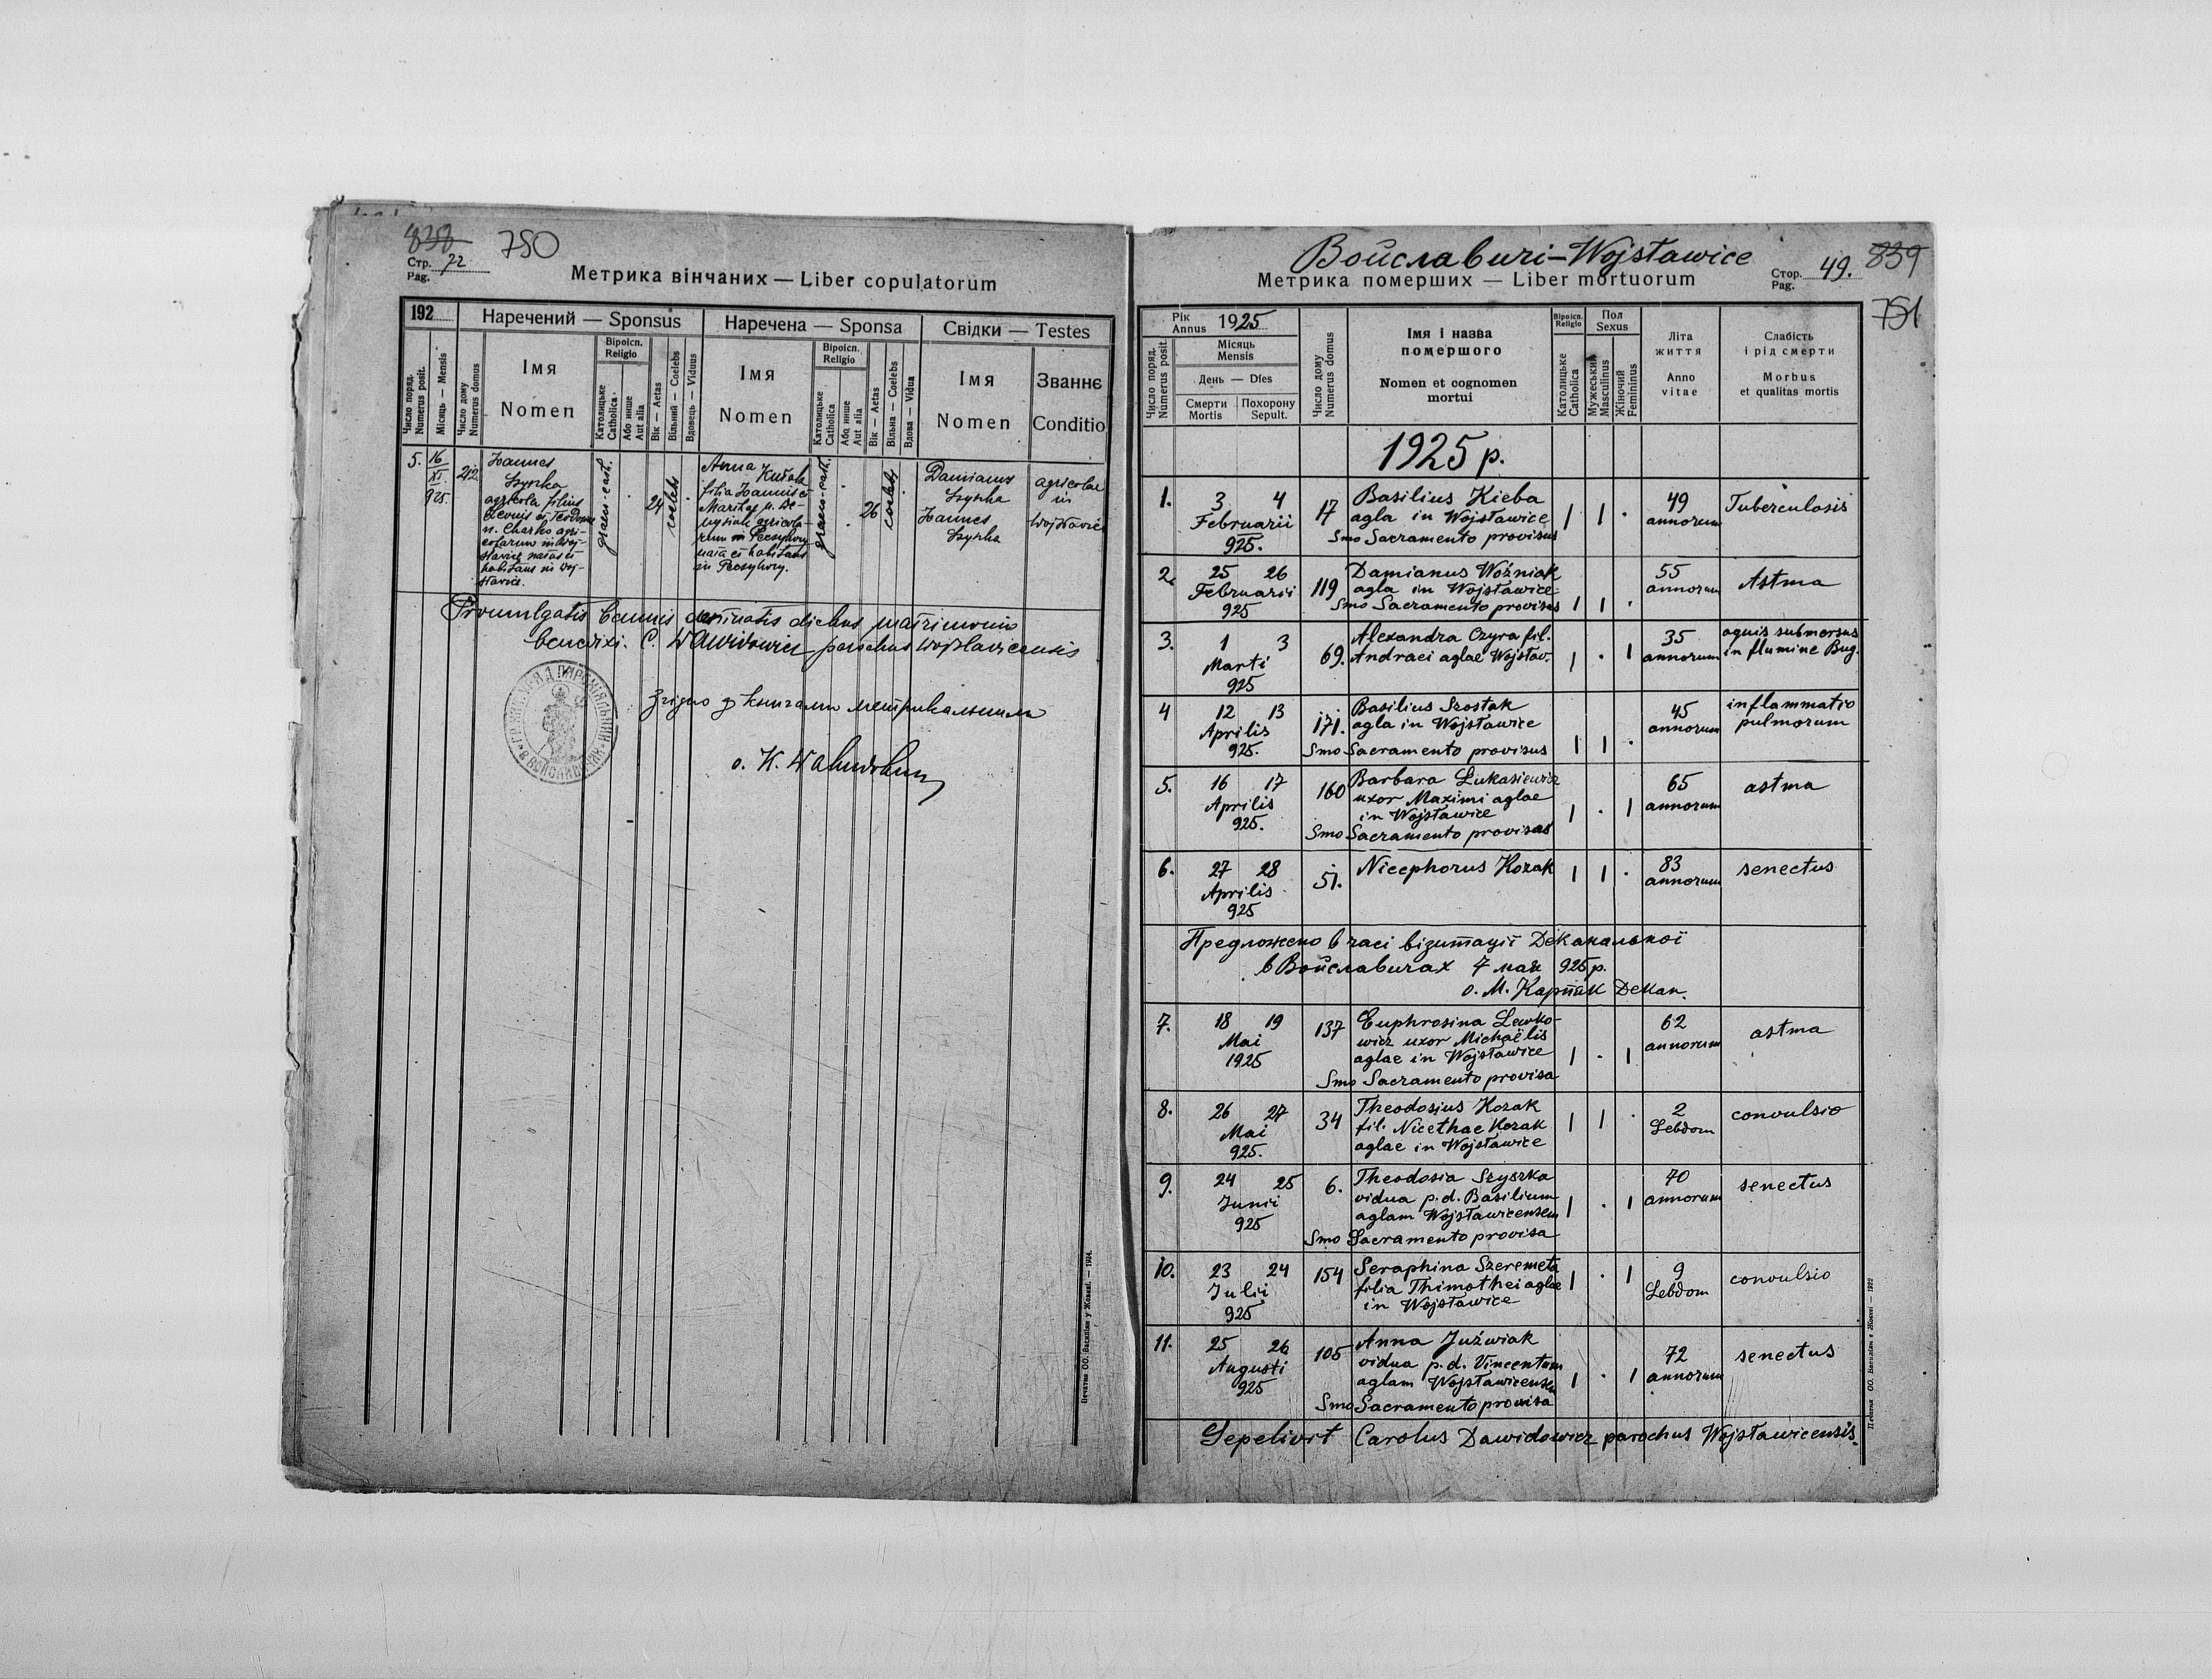 838 750
Стр. 72
Pag.
Метрика вінчаних — Liber copulatorum
192
Наречений — Sponsus
Наречена — Sponsa
Свідки — Testes
Число поряд.
Numerus posit.
Місяць — Mensis
Число дому
Numerus domus
Імя
Nomen
Віроісп.
Religio
Католицьке
Catholica
Або инше
Aut alia
Вік — Aetas
Вільний — Coelebs
Вдовець — Viduus
Імя
Nomen
Віроісп.
Religio
Католицьке
Catholica
Або инше
Aut alia
Вік — Aetas
Вільна — Coelebs
Вдова — Vidua
Імя
Nomen
Званнє
Conditio
5. 16
XI.
925.
212
Joannes
Szyszka
agricola filius
graeco-cath.
24
coelebs
Anna
filia Joannis et
graeco-cath.
26
coelebs
Damianus
Szyszka
Joannes
Szyszka
agricolae
in
Promulgatis bannis dictus matrimonio
benedixi. C. parochus
Згідно з книгами метрикальними
о. К.
Печатня ОО. Василіян у Жовкві. — 1924.
Войславичі – Wojsławice
Метрика померших — Liber mortuorum
Стор. 49.
Pag.
839
751
Рік
Annus 1925
Число поряд.
Numerus posit.
Місяць
Mensis
День — Dies
Смерти
Mortis
Похорону
Sepult.
Число дому
Numerus domus
Імя і назва
помершого
Nomen et cognomen
mortui
Віроісп.
Religio
Католицьке
Catholica
Пол
Sexus
Мужеський
Masculinus
Жіночий
Femininus
Літа
життя
Anno
vitae
Слабість
і рід смерти
Morbus
et qualitas mortis
1925 р.
1. 3 4 17 Basilius Kieba 49 Tuberculosis
Februarii agla in Wojsławice annorum
925. Smo Sacramento provisus
2. 25 26 119 Damianus Woźniak 55 Astma
Februarii agla in Wojsławice annorum
925 Smo Sacramento provisus
3. 1 3 69. Alexandra Czyra fil. 35 aquis submersus
Marti Andraei aglae Wojsław. annorum in flumine Bug.
925
4 12 13 171. Basilius Szostak 45 inflammatio
Aprilis agla in Wojsławice annorum pulmorum
925. Smo Sacramento provisus
5. 16 17 160 Barbara Lukasiewicz 65 astma
Aprilis uxor Maximi aglae annorum
925. in Wojsławice
Smo Sacramento provisas
6. 27 28 51. Nicephorus Kozak 83 senectus
Aprilis annorum
925
Предложено в часі візитації Деканальної
в Войславичах 7 мая 925 р.
о. М. Карпяк Декан.
7. 18 19 137 Euphrosina Lewko- 62 astma
Mai wicz uxor Michaëlis annorum
1925 aglae in Wojsławice
Smo Sacramento provisa
8. 26 27 34 Theodosius Kozak 2 convulsio
Mai fil. Nicethae Kozak Hebdom
925. aglae in Wojsławice
9. 24 25 6. Theodosia Szyszka 70 senectus
Junii vidua p.d. Basilium annorum
925 aglam Wojsławicensem
Smo Sacramento provisa
10. 23 24 154 Seraphina Szeremeta 9 convulsio
Julii filia Thimothei aglae Hebdom
925 in Wojsławice
11. 25 26 105 Anna Juźwiak 72 senectus
Augusti vidua p.d. Vincentum annorum
925 aglam Wojsławicensem
Smo Sacramento provisa
Sepelivit Carolus Dawidowicz parochus Wojsławicensis.
Печатня ОО. Василіян в Жовкві — 1922